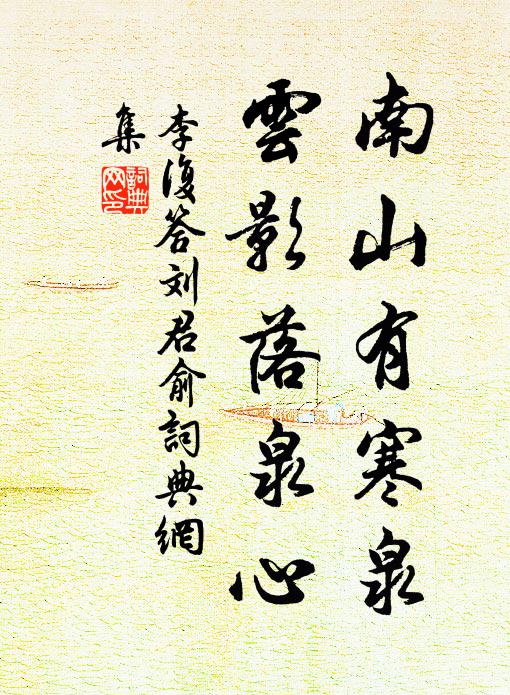 南山有寒泉
雲影落泉心
李復答刘君俞詞典網
集
詞典
网印